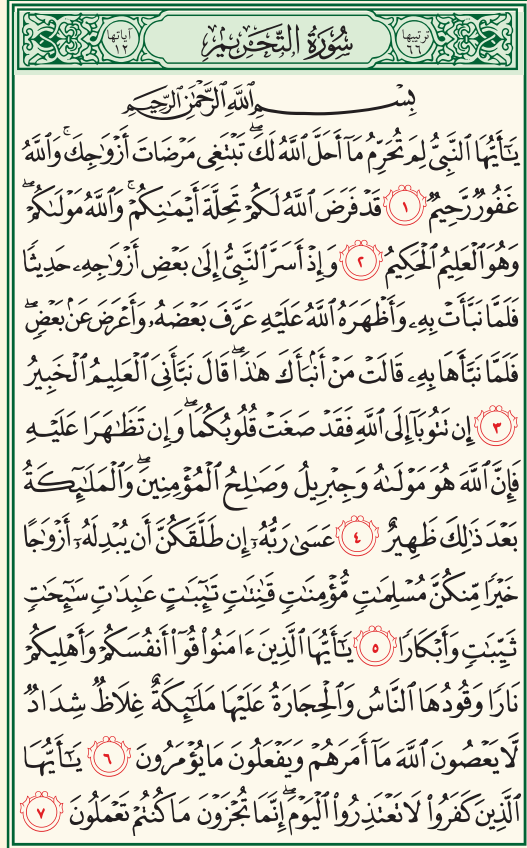 ترتيبها ٦٦ سُورَةُ التَّحْرِيمِ آياتها ١٢
بِسْمِ ٱللَّهِ ٱلرَّحْمَٰنِ ٱلرَّحِيمِ
يَٰٓأَيُّهَا ٱلنَّبِيُّ لِمَ تُحَرِّمُ مَآ أَحَلَّ ٱللَّهُ لَكَۖ تَبْتَغِي مَرْضَاتَ أَزْوَٰجِكَۚ وَٱللَّهُ
غَفُورٞ رَّحِيمٞ ١ قَدْ فَرَضَ ٱللَّهُ لَكُمْ تَحِلَّةَ أَيْمَٰنِكُمْۚ وَٱللَّهُ مَوْلَىٰكُمْۖ
وَهُوَ ٱلْعَلِيمُ ٱلْحَكِيمُ ٢ وَإِذْ أَسَرَّ ٱلنَّبِيُّ إِلَىٰ بَعْضِ أَزْوَٰجِهِۦ حَدِيثٗا
فَلَمَّا نَبَّأَتْ بِهِۦ وَأَظْهَرَهُ ٱللَّهُ عَلَيْهِ عَرَّفَ بَعْضَهُۥ وَأَعْرَضَ عَنۢ بَعْضٖۖ
فَلَمَّا نَبَّأَهَا بِهِۦ قَالَتْ مَنْ أَنۢبَأَكَ هَٰذَاۖ قَالَ نَبَّأَنِيَ ٱلْعَلِيمُ ٱلْخَبِيرُ
٣ إِن تَتُوبَآ إِلَى ٱللَّهِ فَقَدْ صَغَتْ قُلُوبُكُمَاۖ وَإِن تَظَٰهَرَا عَلَيْهِ
فَإِنَّ ٱللَّهَ هُوَ مَوْلَىٰهُ وَجِبْرِيلُ وَصَٰلِحُ ٱلْمُؤْمِنِينَۖ وَٱلْمَلَٰٓئِكَةُ
بَعْدَ ذَٰلِكَ ظَهِيرٌ ٤ عَسَىٰ رَبُّهُۥٓ إِن طَلَّقَكُنَّ أَن يُبْدِلَهُۥٓ أَزْوَٰجًا
خَيْرٗا مِّنكُنَّ مُسْلِمَٰتٖ مُّؤْمِنَٰتٖ قَٰنِتَٰتٖ تَٰٓئِبَٰتٍ عَٰبِدَٰتٖ سَٰٓئِحَٰتٖ
ثَيِّبَٰتٖ وَأَبْكَارٗا ٥ يَٰٓأَيُّهَا ٱلَّذِينَ ءَامَنُوا۟ قُوٓا۟ أَنفُسَكُمْ وَأَهْلِيكُمْ
نَارٗا وَقُودُهَا ٱلنَّاسُ وَٱلْحِجَارَةُ عَلَيْهَا مَلَٰٓئِكَةٌ غِلَاظٞ شِدَادٞ
لَّا يَعْصُونَ ٱللَّهَ مَآ أَمَرَهُمْ وَيَفْعَلُونَ مَا يُؤْمَرُونَ ٦ يَٰٓأَيُّهَا
ٱلَّذِينَ كَفَرُوا۟ لَا تَعْتَذِرُوا۟ ٱلْيَوْمَۖ إِنَّمَا تُجْزَوْنَ مَا كُنتُمْ تَعْمَلُونَ ٧